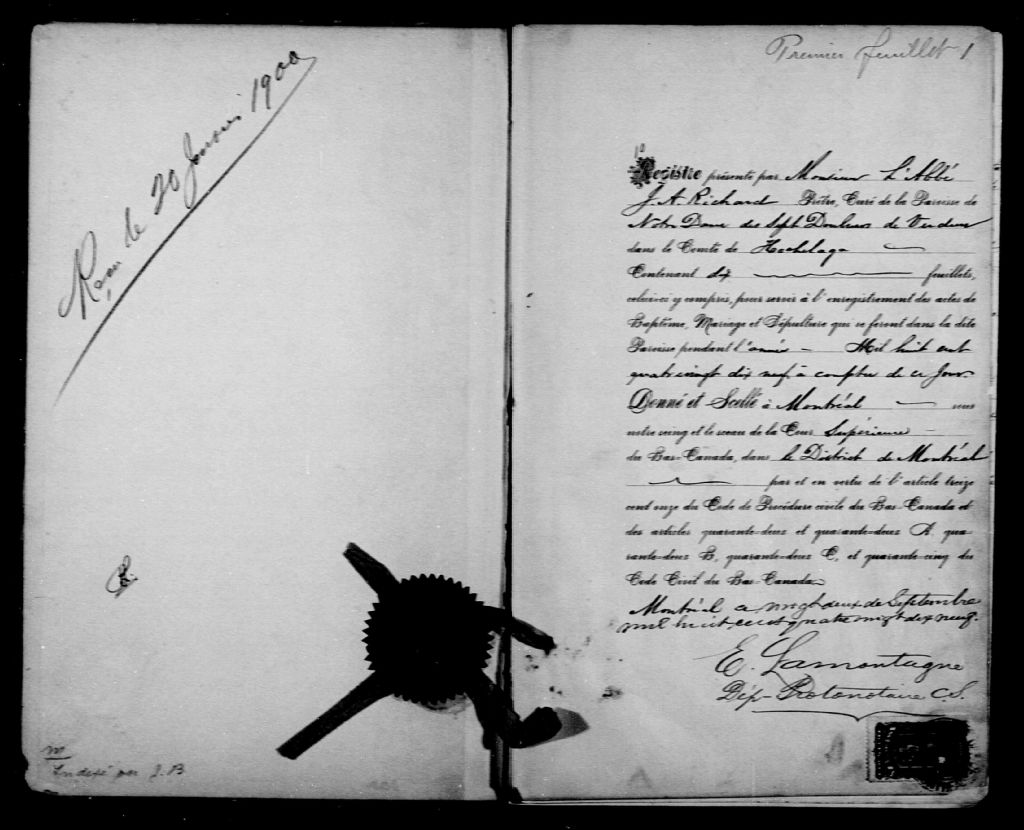 Reçu le 20 Janvier 1900
Indexé par J.B.
Premier feuillet 1
Registre présenté par Monsieur L'Abbé
J. A. Richard Prêtre, Curé de la Paroisse de
Notre Dame des Sept Douleurs de Verdun
dans le Comté de Hochelaga
Contenant dix feuillets,
celui-ci y compris, pour servir à l'enregistrement des actes de
Baptême, Mariage et Sépulture qui se feront dans la dite
Paroisse pendant l'année Mil huit cent
quatrevingt dix neuf à compter de ce jour.
Donné et Scellé à Montréal sous
notre seing et le sceau de la Cour Supérieure
du Bas-Canada, dans le District de Montréal
par et en vertu de l'article treize
cent onze du Code de Procédure civile du Bas-Canada et
des articles quarante-deux et quarante-deux A, qua-
rante-deux B, quarante-deux C, et quarante-cinq du
Code Civil du Bas-Canada.
Montréal ce vingt deux de Septembre
mil huit cent quatre vingt dix neuf.
E. Lamontagne
Dép- Protonotaire C.S.